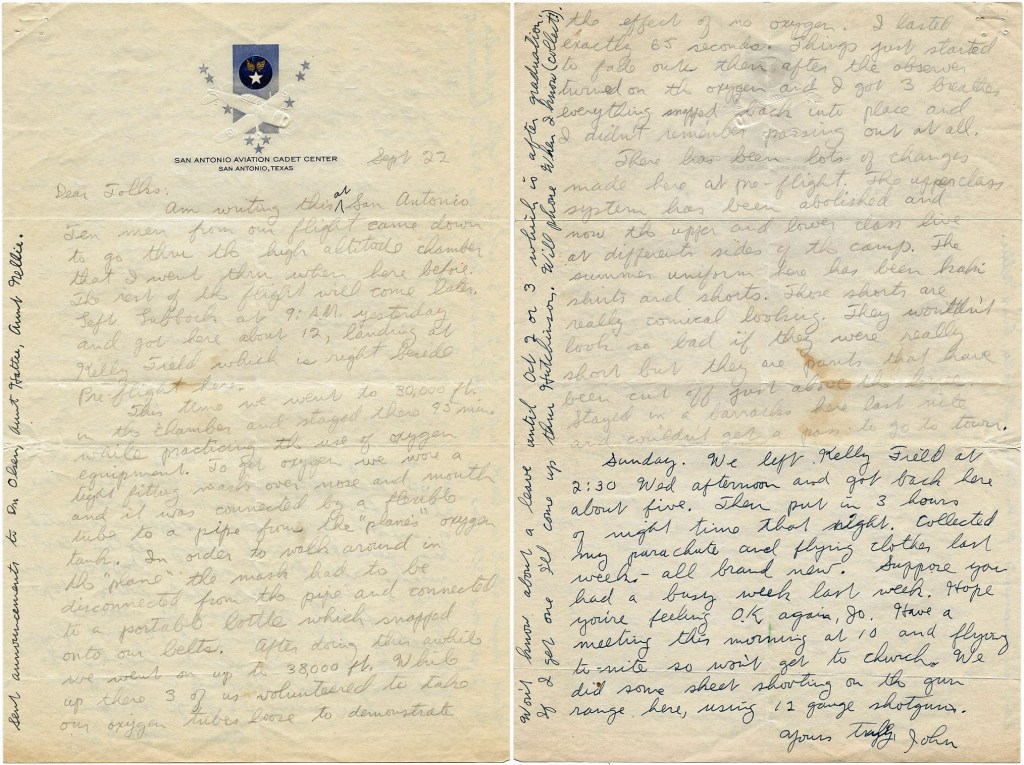 SAN ANTONIO AVIATION CADET CENTER
SAN ANTONIO, TEXAS
Sept 22
Dear Folks:
Am writing this at San Antonio
Ten men from our flight came down
to go thru the high altitude chamber
that I went thru when here before.
The rest of the flight will come later.
Left Lubbock at 9: A.M. yesterday
and got here about 12, landing at
Kelly Field which is right beside
Pre-flight here.
This time we went to 30,000 ft.
in the chamber and stayed there 95 min
while practicing the use of oxygen
equipment. To get oxygen we wore a
tight fitting mask over nose and mouth
and it was connected by a
tube to a pipe from the "plane's" oxygen
tank. In order to walk around in
the "plane" the mask had to be
disconnected from the pipe and connected
to a portable bottle which snapped
onto our belts. After doing this awhile
we went on up to 38,000 ft. While
up there 3 of us volunteered to take
our oxygen tubes loose to demonstrate
Sent announcements to Dr. Olsen, Aunt Hattie, Aunt Nellie.
the effect of no oxygen. I lasted
exactly 65 seconds. Things just started
to fade out then after the observer
turned on the oxygen and I got 3 breathes
everything snapped back into place and
I didn't remember passing out at all.
There has been lots of changes
made here at pre-flight. The upperclass
system has been abolished and
now the upper and lower class live
at differents sides of the camp. The
summer uniform here has been kaki
shirts and shorts. Those shorts are
really comical looking. They wouldn't
look so bad if they were really
short but they are pants that have
been cut off just above the knee.
Stayed in a barracks here last nite
and couldn't get a pass to go to town.
Sunday. We left Kelly Field at
2:30 Wed afternoon and got back here
about five. Then put in 3 hours
of night time that night. Collected
my parachute and flying clothes last
week - all brand new. Suppose you
had a busy week last week. Hope
you're feeling O.K. again, Jo. Have a
meeting this morning at 10 and flying
to-nite so won't get to church. We
did some skeet shooting on the gun
range here, using 12 gauge shotguns.
Yours truly, John
Won't know about a leave until Oct 2 or 3 which is after graduation.
If I get one I'll come up thru Hutchinson. Will phone when I know (collect).